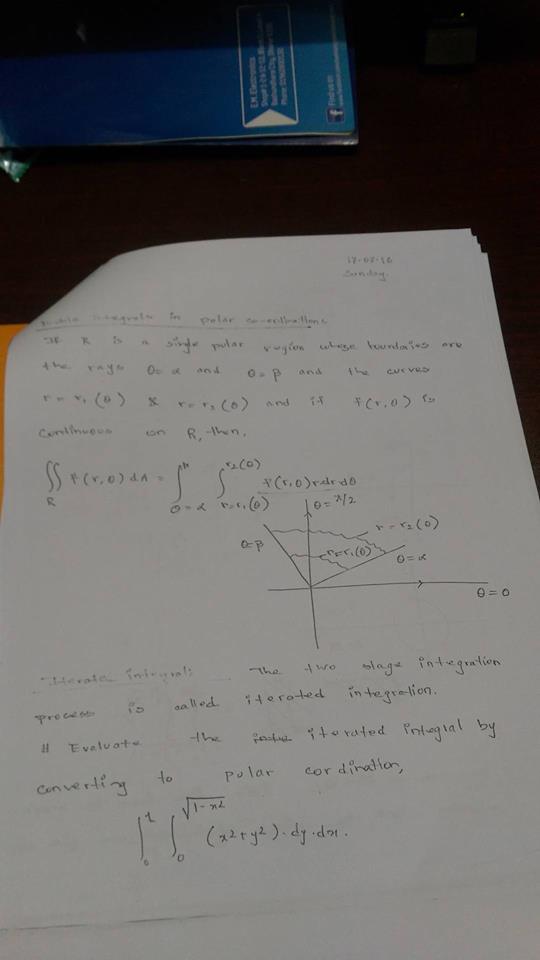 E.M. Electronics
Find us on
Sunday.
integrals in polar co-ordinations
If R is a single polar region whose boundaries are
the rays θ = α and θ = β and the curves
r = r₁(θ) & r = r₂(θ) and if f(r,θ) is
continuous on R, then,
∬R f(r,θ) dA = ∫θ=α ∫r=r₁(θ) r₂(θ) f(r,θ) r dr dθ
θ = π/2
r = r₂(θ)
θ=β
r=r₁(θ)
θ=α
θ = 0
Iterate integral: The two stage integration
process is called iterated integration.
# Evaluate the iterated integral by
converting to polar cordination,
∫₀¹ ∫₀^√1-x² (x²+y²)·dy·dx.